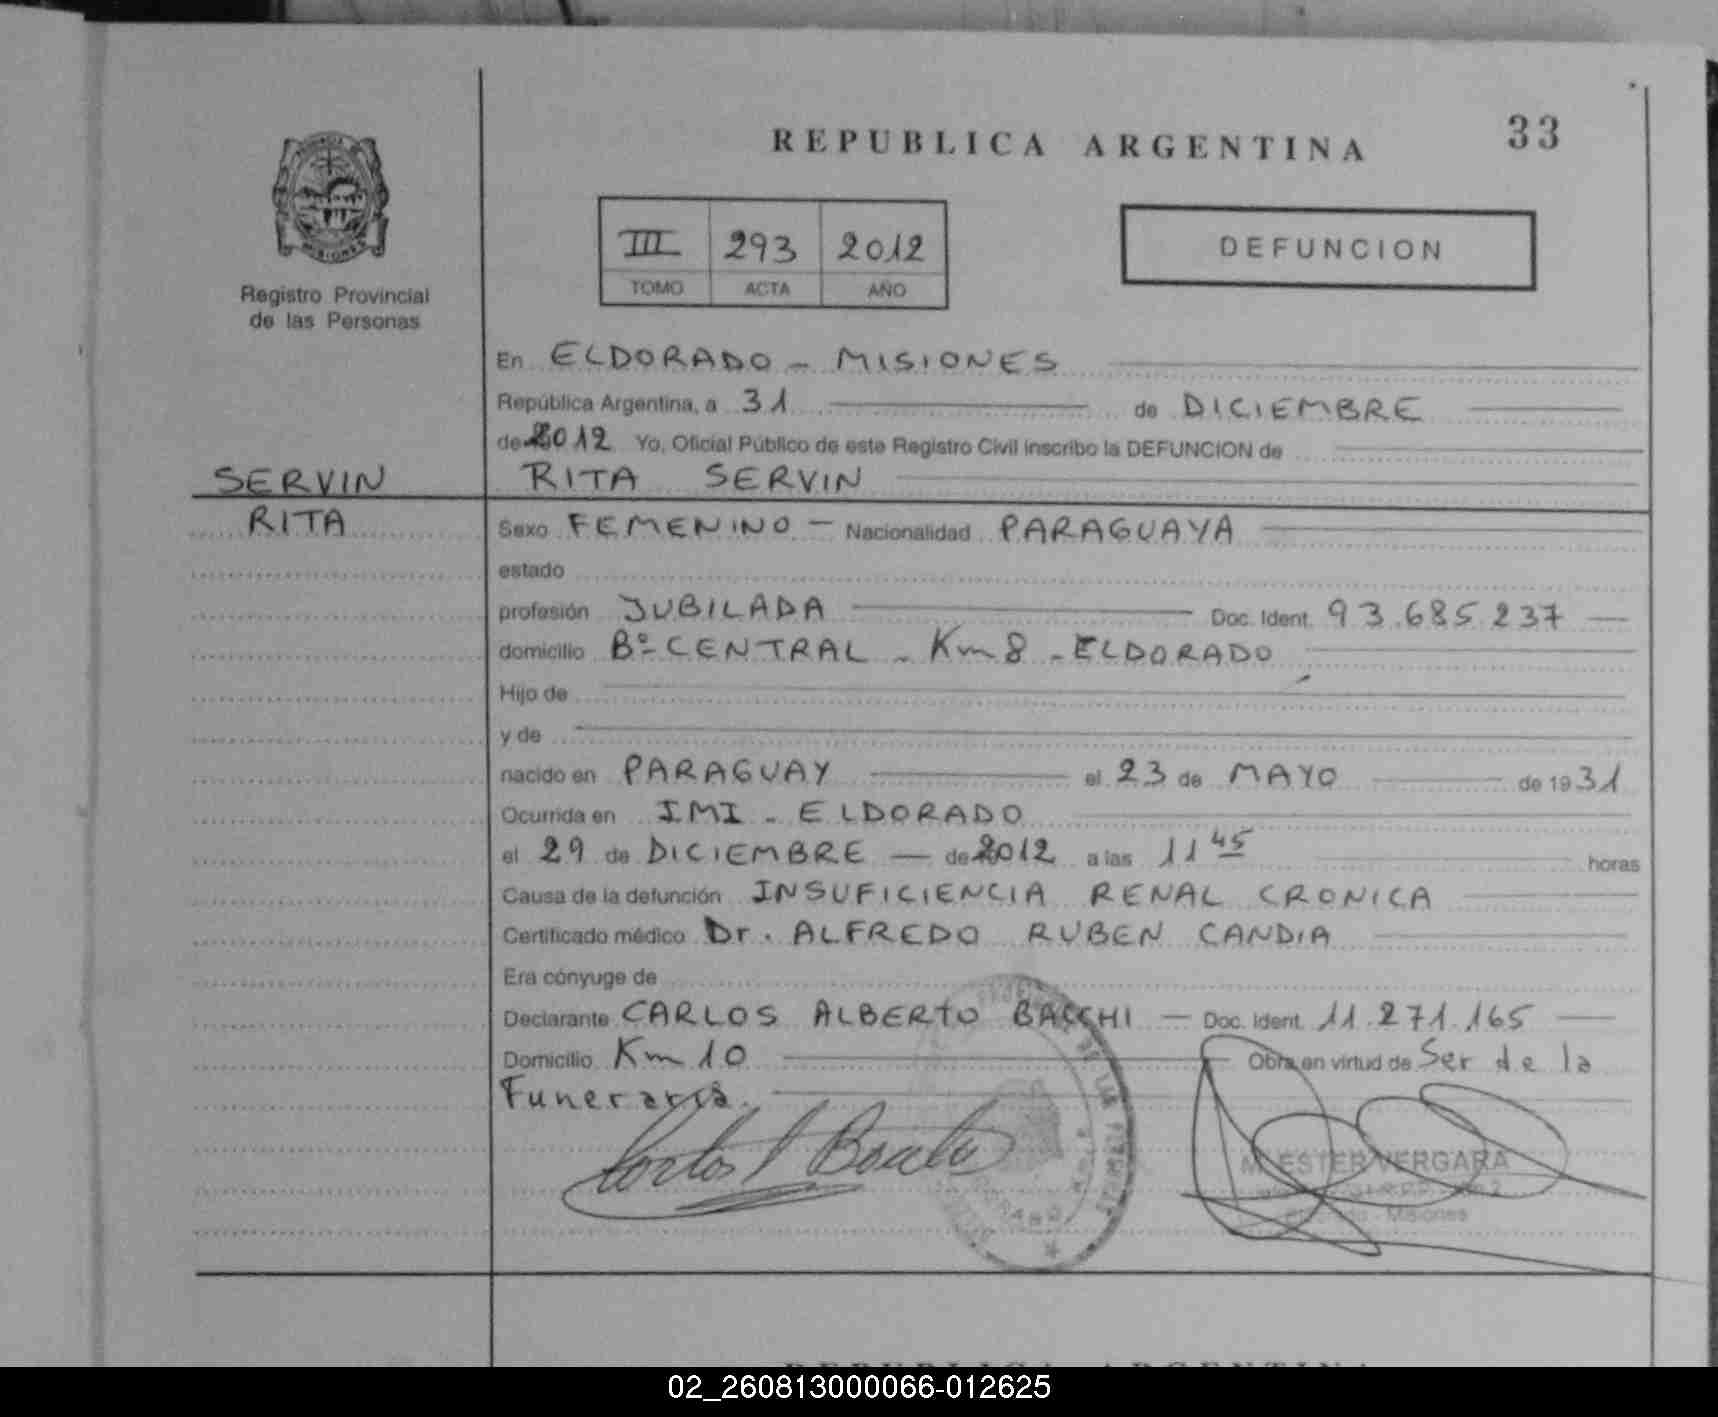 REPUBLICA ARGENTINA
33
MISIONES
Registro Provincial
de las Personas
III 293 2012
TOMO ACTA AÑO
DEFUNCION
En ELDORADO - MISIONES
República Argentina, a 31 de DICIEMBRE
de 2012 Yo, Oficial Público de este Registro Civil inscribo la DEFUNCION de
SERVIN
RITA
RITA SERVIN
Sexo FEMENINO - Nacionalidad PARAGUAYA
estado
profesión JUBILADA Doc. Ident. 93.685.237
domicilio Bº CENTRAL - Km 8 - ELDORADO
Hijo de
y de
nacido en PARAGUAY el 23 de MAYO de 1931
Ocurrida en IMI - ELDORADO
el 29 de DICIEMBRE - de 2012 a las 11 45 horas
Causa de la defunción INSUFICIENCIA RENAL CRONICA
Certificado médico Dr. ALFREDO RUBEN CANDIA
Era cónyuge de
Declarante CARLOS ALBERTO BACCHI - Doc. Ident. 11.271.165
Domicilio Km 10 Obra en virtud de Ser de la
Funeraria.
M. ESTER VERGARA
Eldorado - Misiones
REPUBLICA ARGENTINA
02_260813000066-012625